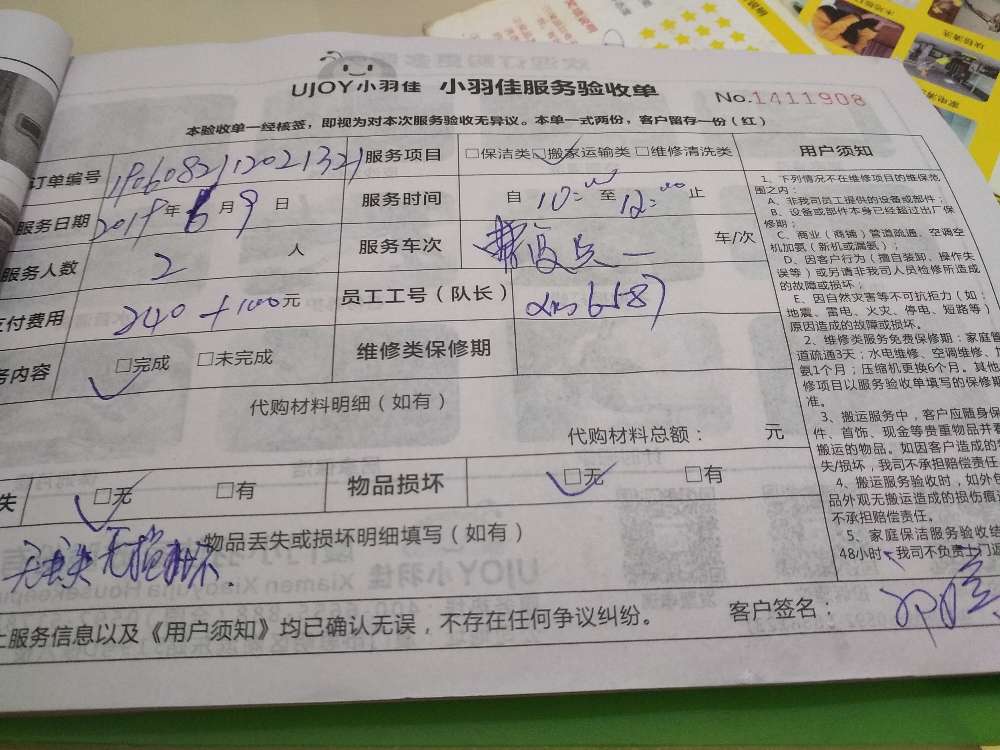 UJOY小羽佳 小羽佳服务验收单
No.1411908
本验收单一经核签，即视为对本次服务验收无异议。本单一式两份，客户留存一份（红）
订单编号 服务项目 □保洁类 □搬家运输类 □维修清洗类 用户须知
服务日期 2019年6月9日 服务时间 自 10:00 至 12:00 止
服务人数 2 人 服务车次 车/次
应付费用 240+100元 员工工号（队长）
务内容 □完成 □未完成 维修类保修期
代购材料明细（如有）
代购材料总额： 元
失 □无 □有 物品损坏 □无 □有
物品丢失或损坏明细填写（如有）
无丢失无损坏.
上服务信息以及《用户须知》均已确认无误，不存在任何争议纠纷。 客户签名：
1、下列情况不在维修项目的维保范
围之内：
A、非我司员工提供的设备或部件；
B、设备或部件本身已经超过出厂保
修期；
C、商业（商铺）管道疏通、空调空
机加氨（新机或漏氨）；
D、因客户行为（擅自装卸、操作失
误等）或另请非我司人员检修所造成
的故障或损坏；
E、因自然灾害等不可抗拒力（如：
地震、雷电、火灾、停电、短路等）
原因造成的故障或损坏。
2、维修类服务免费保修期：家庭管
道疏通3天；水电维修、空调维修、加
氨1个月；压缩机更换6个月。其他
修项目以服务验收单填写的保修期
准。
3、搬运服务中，客户应随身保
件、首饰、现金等贵重物品并看
搬运的物品。如因客户造成的
失/损坏，我司不承担赔偿责任
4、搬运服务验收时，如外包
品外观无搬运造成的损伤痕迹
不承担赔偿责任。
5、家庭保洁服务验收结
48小时，我司不负责上门返